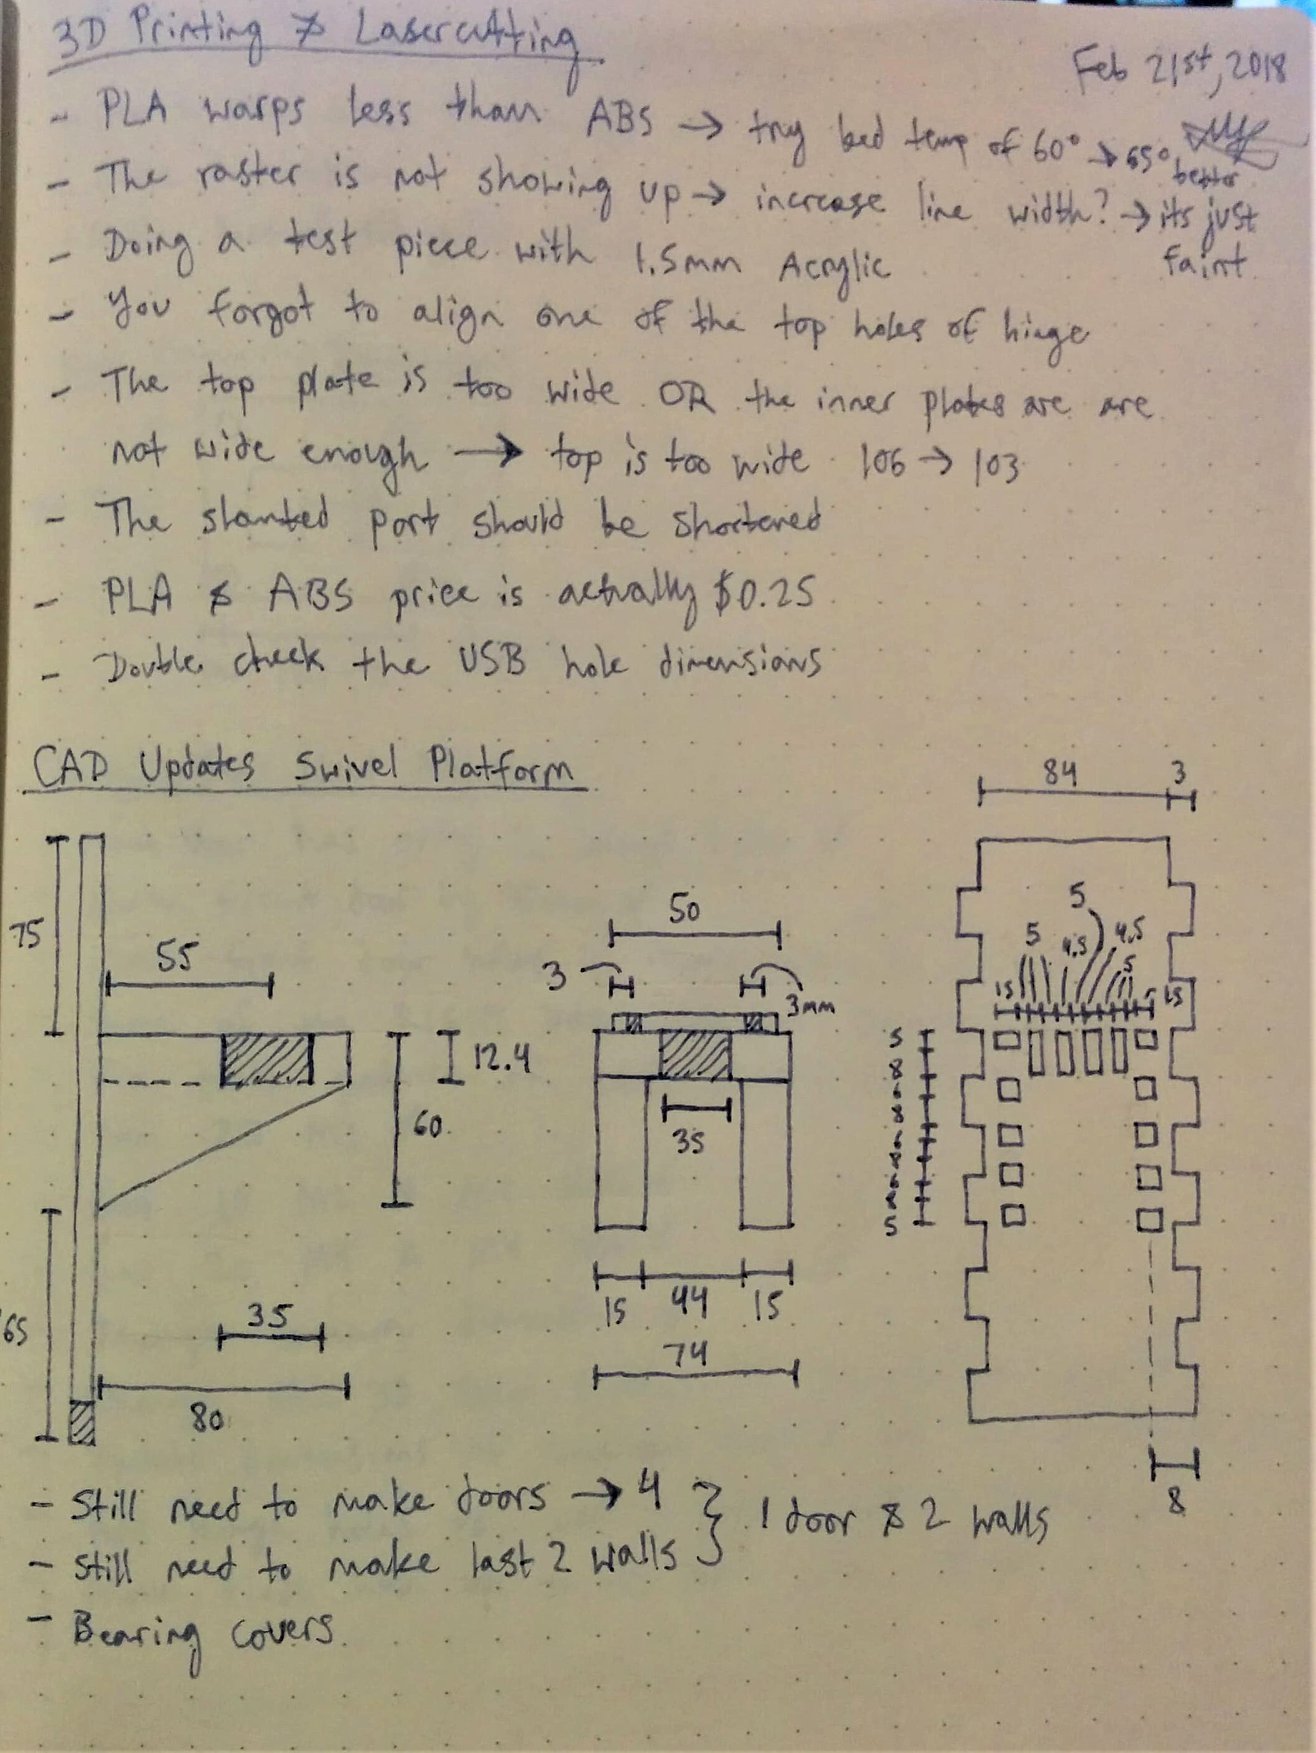 3D Printing & Lasercutting
Feb 21st, 2018
- PLA warps less than ABS → try bed temp of 60° → 65° better
- The raster is not showing up → increase line width? → its just faint
- Doing a test piece with 1.5mm Acrylic
- You forgot to align one of the top holes of hinge
- The top plate is too wide OR the inner plates are are
not wide enough → top is too wide 106 → 103
- The slanted part should be shortened
- PLA & ABS price is actually $0.25
- Double check the USB hole dimensions
CAD Updates Swivel Platform
75
55
12.4
60
65
35
80
50
3
3mm
35
15 44 15
74
84 3
5
5 4.5 4.5
5
15 15
5
8
8
5
8
- Still need to make doors → 4
- Still need to make last 2 walls } 1 door & 2 walls
- Bearing covers